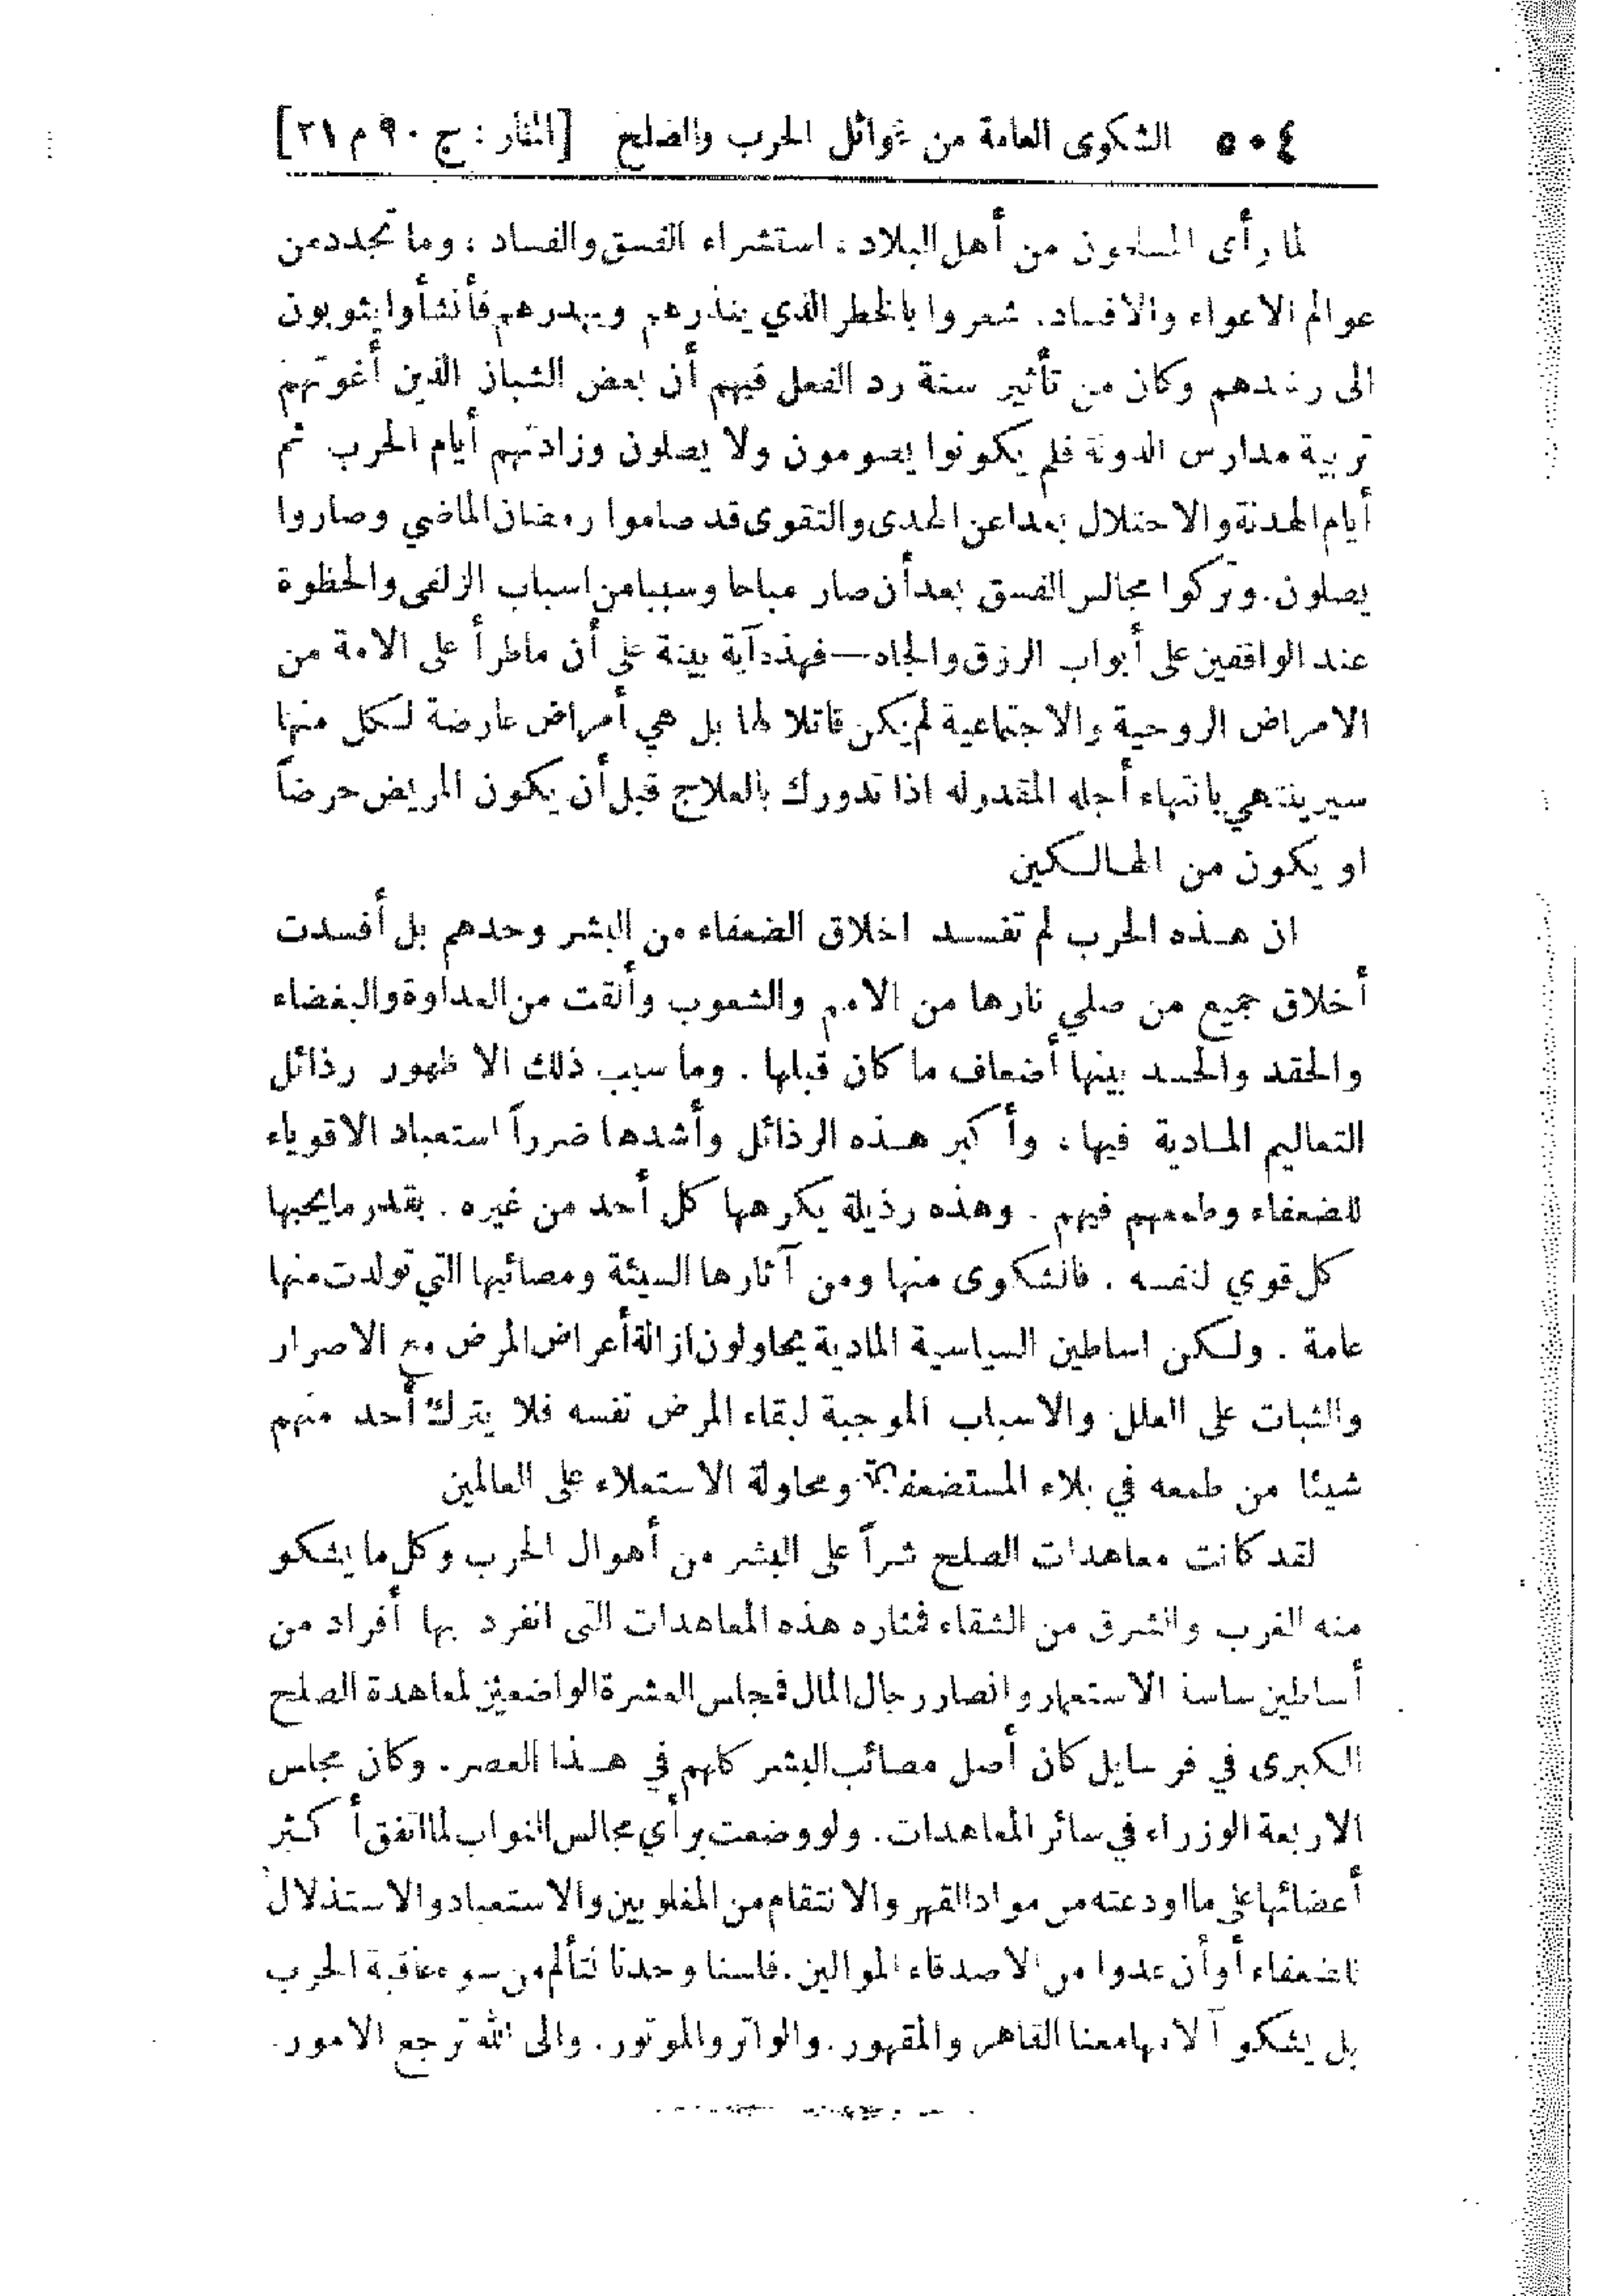 ٥٠٤ الشكوى العامة من غوائل الحرب والصلح [المنار : ج ٩٠ م ٢١]
لما رأى المسلمون من أهل البلاد ، استشراء الفسق والفساد ؛ وما تجدد من
عوالم الاغواء والافساد. شعروا بالخطر الذي ينذرهم ويهدرهم فأنشأوا يثوبون
الى رشدهم وكان من تأثير سنة رد الفعل فيهم أن بعض الشبان الذين أغوتهم
تربية مدارس الدولة فلم يكونوا يصومون ولا يصلون وزادتهم أيام الحرب ثم
أيام الهدنة والاحتلال بعدا عن الهدى والتقوى قد صاموا رمضان الماضي وصاروا
يصلون. وتركوا مجالس الفسق بعد أن صار مباحا وسببا من اسباب الزلفى والحظوة
عند الواقفين على أبواب الرزق والجاه — فهذه آية بينة على أن ماطرأ على الامة من
الامراض الروحية والاجتماعية لم يكن قاتلا لها بل هي أمراض عارضة لكل منها
سير ينتهي بانتهاء أجله المقدر له اذا تدورك بالعلاج قبل أن يكون المريض حرضاً
او يكون من الهالكين
ان هذه الحرب لم تفسد اخلاق الضعفاء من البشر وحدهم بل أفسدت
أخلاق جميع من صلي نارها من الامم والشعوب وألقت من العداوة والبغضاء
والحقد والحسد بينها أضعاف ما كان قبلها . وما سبب ذلك الا ظهور رذائل
التعاليم المادية فيها ، وأكبر هذه الرذائل وأشدها ضرراً استعباد الاقوياء
للضعفاء وطمعهم فيهم . وهذه رذيلة يكرهها كل أحد من غيره . بقدر مايحبها
كل قوي لنفسه . فالشكوى منها ومن آثارها السيئة ومصائبها التي تولدت منها
عامة . ولكن اساطين السياسية المادية يحاولون ازالة أعراض المرض مع الاصرار
والثبات على العلل والاسباب الموجبة لبقاء المرض نفسه فلا يترك أحد منهم
شيئا من طمعه في بلاء المستضعفين ومحاولة الاستعلاء على العالمين
لقد كانت معاهدات الصلح شراً على البشر من أهوال الحرب وكل ما يشكو
منه الغرب والشرق من الشقاء فمثاره هذه المعاهدات التى انفرد بها أفراد من
أساطين ساسة الاستعمار وانصار رجال المال فمجلس العشرة الواضعين لمعاهدة الصلح
الكبرى في فرسايل كان أصل مصائب البشر كلهم في هذا العصر. وكان مجلس
الاربعة الوزراء في سائر المعاهدات. ولو وضعت برأي مجالس النواب لما اتفق أكثر
أعضائها على ما اودعته من مواد القهر والانتقام من المغلوبين والاستعباد والاستذلال
للضعفاء أو أن عدوا من الاصدقاء الموالين. فلسنا وحدنا نتألم من سوء عاقبة الحرب
بل يشكو آلامها معنا القاهر والمقهور. والواتر والموتور. والى الله ترجع الامور.